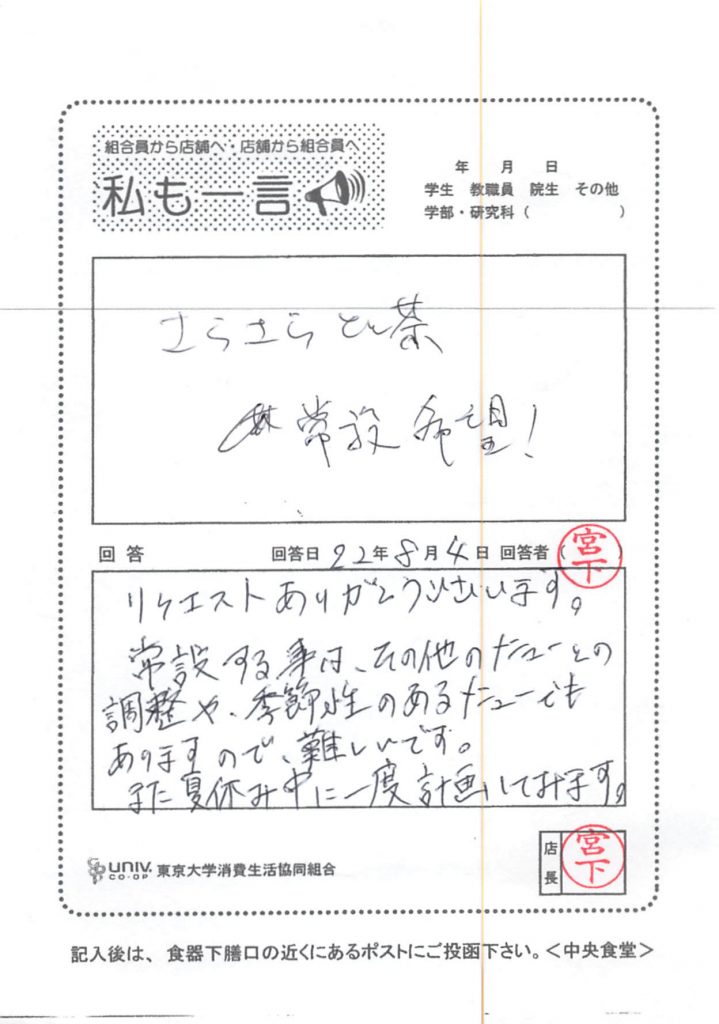 組合員から店舗へ・店舗から組合員へ
私も一言
年 月 日
学生 教職員 院生 その他
学部・研究科（ ）
さらさらとん茶
常設希望！
回答 回答日 22年8月4日 回答者（宮下）
リクエストありがとうございます。
常設する事は、その他のメニューとの
調整や、季節性のあるメニューでも
ありますので、難しいです。
また夏休み中に一度計画してみます。
店長 宮下
UNIV. CO-OP 東京大学消費生活協同組合
記入後は、食器下膳口の近くにあるポストにご投函下さい。＜中央食堂＞